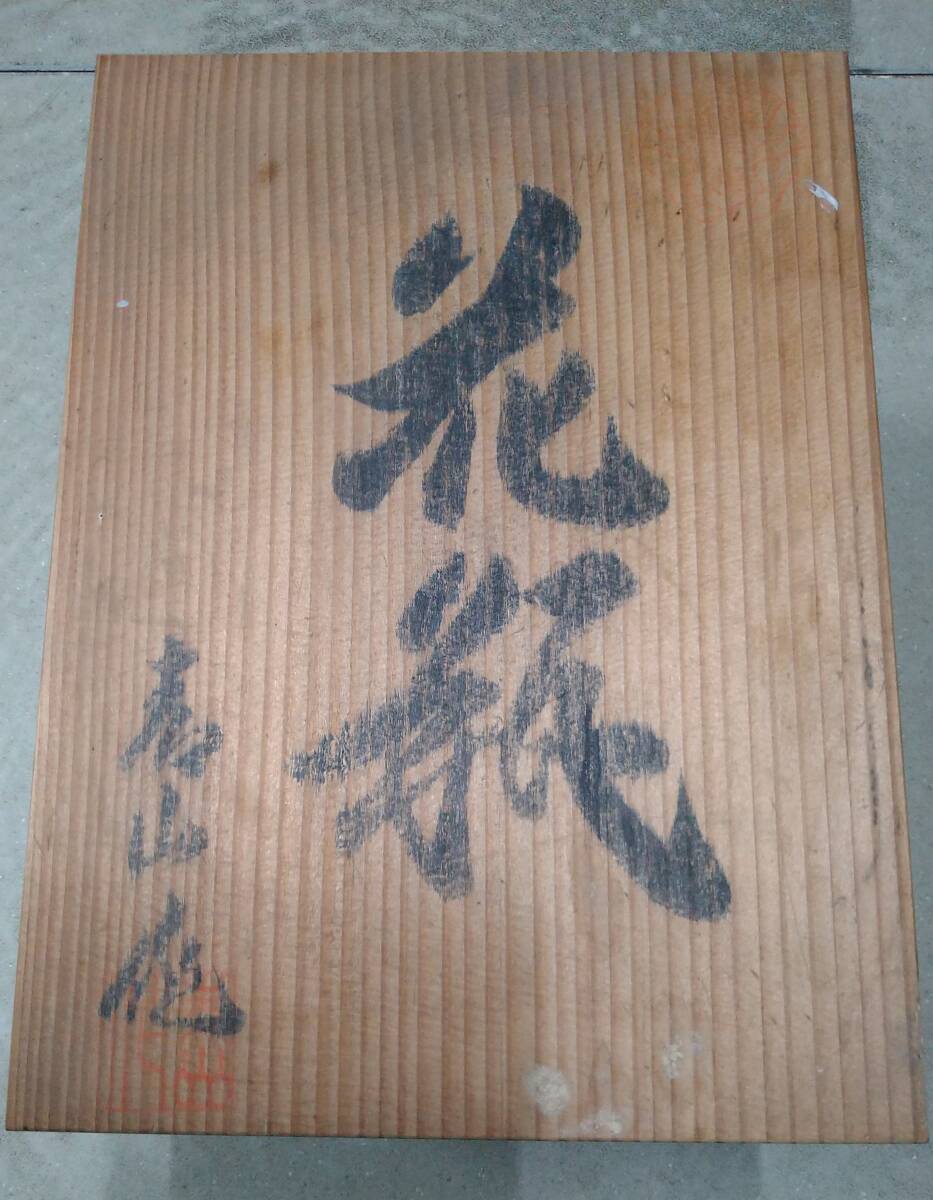 花瓶
山作